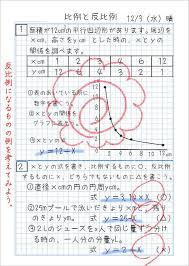 比例と反比例 12/9 (水) 晴
1 面積が12cm²の平行四辺形があります。底辺を
xcm、高さをycmとした時の、xとyの
関係を調べます。
xcm 1 2 3 4 5 6
ycm 12 6 4 3 2.4 2
①表のあいている所に
数字を書こう。
②xとyの関係を
グラフに表そう。
③xとyの関係を
式に書こう。
y=12÷x
反比例になるものの例を考えてみよう。
2 xとyの式を書き、比例するものに○、反比例す
るものに×、どちらでもないものに△を書こう。
①直径xcmの円の円周ycm。
式 y=3.14×x
②25mプールで泳いだきょりxmと、残り
のきょりym。 式 y=25-x
③2Lのジュースをx人で同じ量ずつ分け
る時の、一人分の量yL。
式 y=2÷x